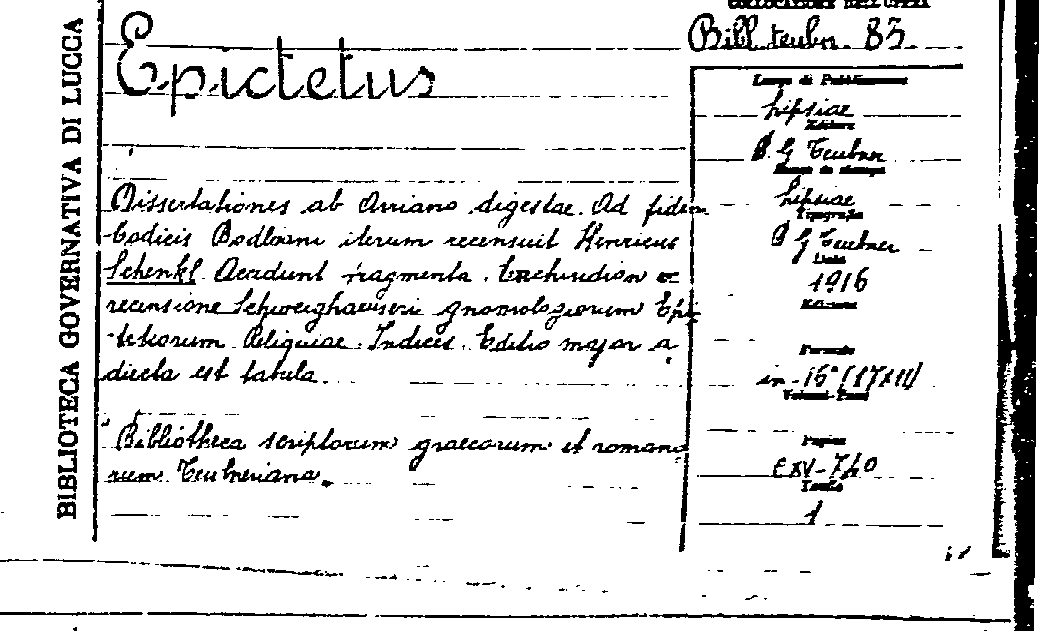 BIBLIOTECA GOVERNATIVA DI LUCCA
COLLOCAZIONE DELL'OPERA
Bibl. teubn. 83.
Epictetus
Luogo di Pubblicazione
Lipsiae
Editore
B. G Teubner
Lipsiae
Tipografia
B G Teubner
Data
1916
Formato
in-16° (17x11)
Pagine
CXV-740
Tavole
1
Dissertationes ab Arriano digestae. Ad fidem
Codicis Bodleiani iterum recensuit Henricus
Schenkl. Accedunt fragmenta. Enchiridion ex
recensione Schweighaeuseri gnomologiorum Epic
-teteorum Reliquiae. Indices. Editio major a
diecta est tabula.
Bibliotheca scriptorum graecorum et romano
rum Teubneriana.